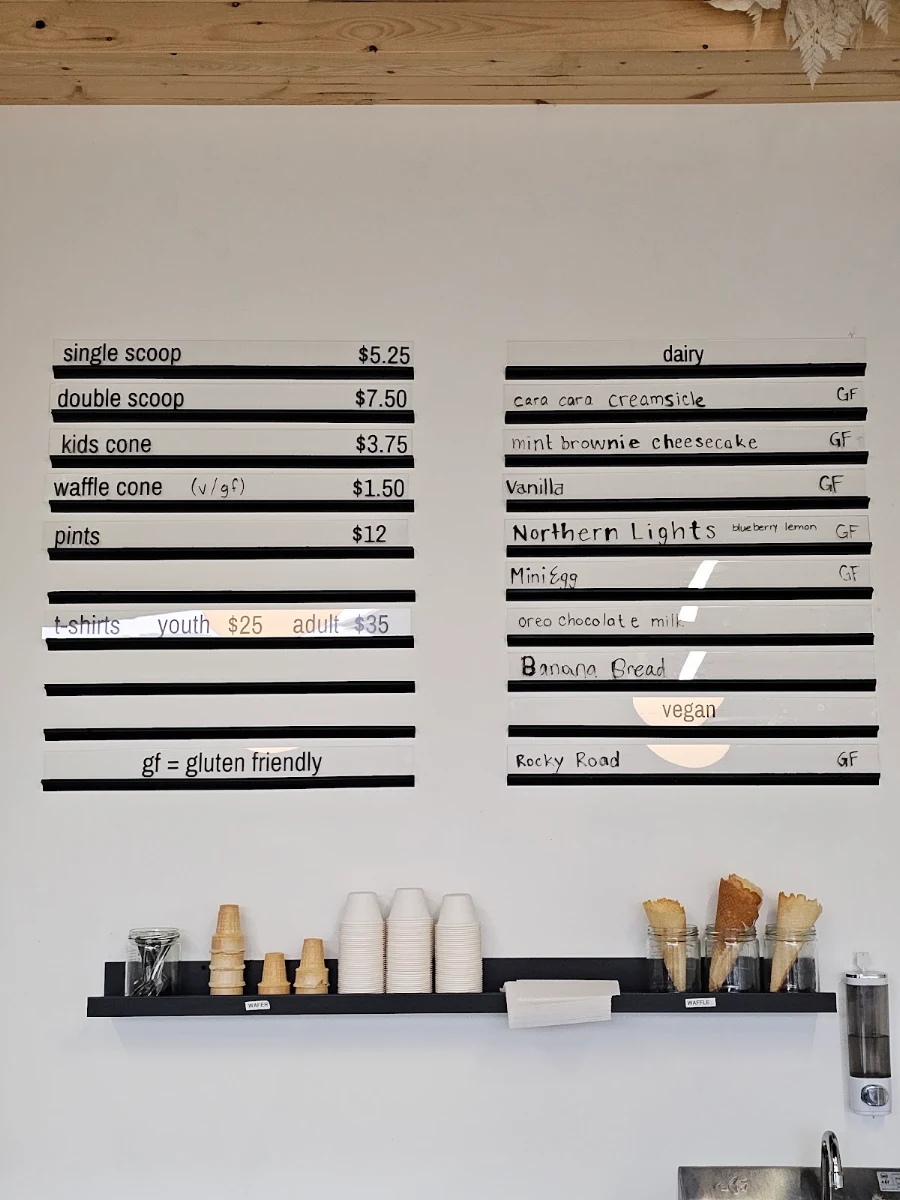 single scoop $5.25
double scoop $7.50
kids cone $3.75
waffle cone (v/gf) $1.50
pints $12
t-shirts youth $25 adult $35
gf = gluten friendly
dairy
cara cara creamsicle GF
mint brownie cheesecake GF
Vanilla GF
Northern Lights blueberry lemon GF
Mini Egg GF
oreo chocolate milk
Banana Bread
vegan
Rocky Road GF
WAFER
WAFFLE